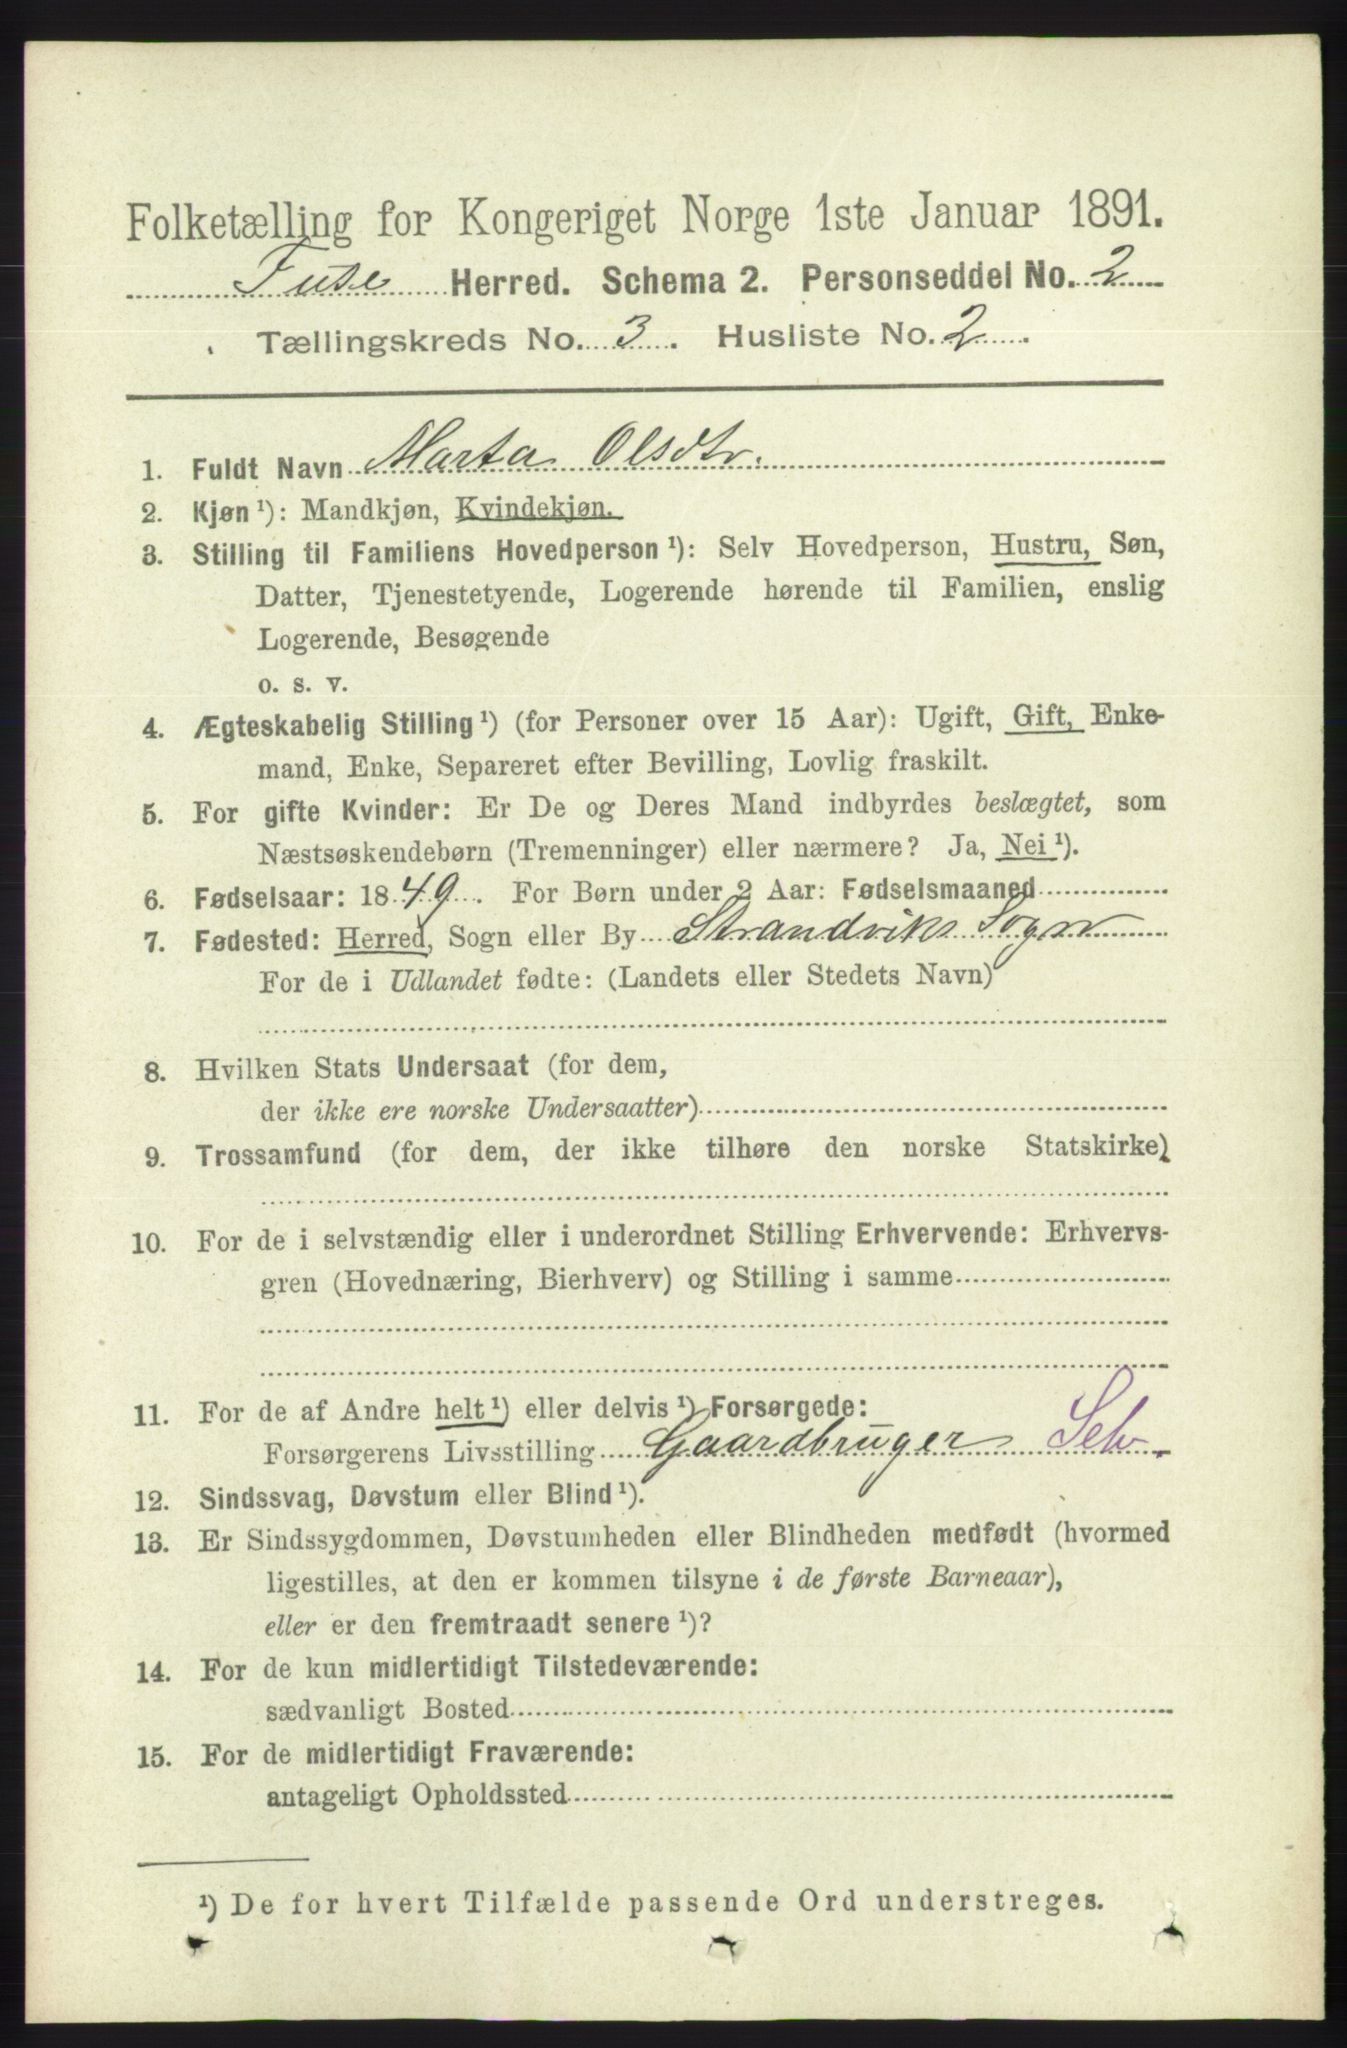 Folketælling for Kongeriget Norge 1ste Januar 1891.
Fuse Herred. Schema 2. Personseddel No. 2
Tællingskreds No. 3. Husliste No. 2.
1. Fuldt Navn Marta Olsdtr.
2. Kjøn ¹): Mandkjøn, Kvindekjøn.
3. Stilling til Familiens Hovedperson ¹): Selv Hovedperson, Hustru, Søn,
Datter, Tjenestetyende, Logerende hørende til Familien, enslig
Logerende, Besøgende
o. s. v.
4. Ægteskabelig Stilling ¹) (for Personer over 15 Aar): Ugift, Gift, Enke-
mand, Enke, Separeret efter Bevilling, Lovlig fraskilt.
5. For gifte Kvinder: Er De og Deres Mand indbyrdes beslægtet, som
Næstsøskendebørn (Tremenninger) eller nærmere? Ja, Nei ¹).
6. Fødselsaar: 1849. For Børn under 2 Aar: Fødselsmaaned
7. Fødested: Herred, Sogn eller By Strandviks Sogn
For de i Udlandet fødte: (Landets eller Stedets Navn)
8. Hvilken Stats Undersaat (for dem,
der ikke ere norske Undersaatter)
9. Trossamfund (for dem, der ikke tilhøre den norske Statskirke)
10. For de i selvstændig eller i underordnet Stilling Erhvervende: Erhvervs-
gren (Hovednæring, Bierhverv) og Stilling i samme
11. For de af Andre helt ¹) eller delvis ¹) Forsørgede:
Forsørgerens Livsstilling Gaardbruger Selv.
12. Sindssvag, Døvstum eller Blind ¹).
13. Er Sindssygdommen, Døvstumheden eller Blindheden medfødt (hvormed
ligestilles, at den er kommen tilsyne i de første Barneaar),
eller er den fremtraadt senere ¹)?
14. For de kun midlertidigt Tilstedeværende:
sædvanligt Bosted
15. For de midlertidigt Fraværende:
antageligt Opholdssted
¹) De for hvert Tilfælde passende Ord understreges.